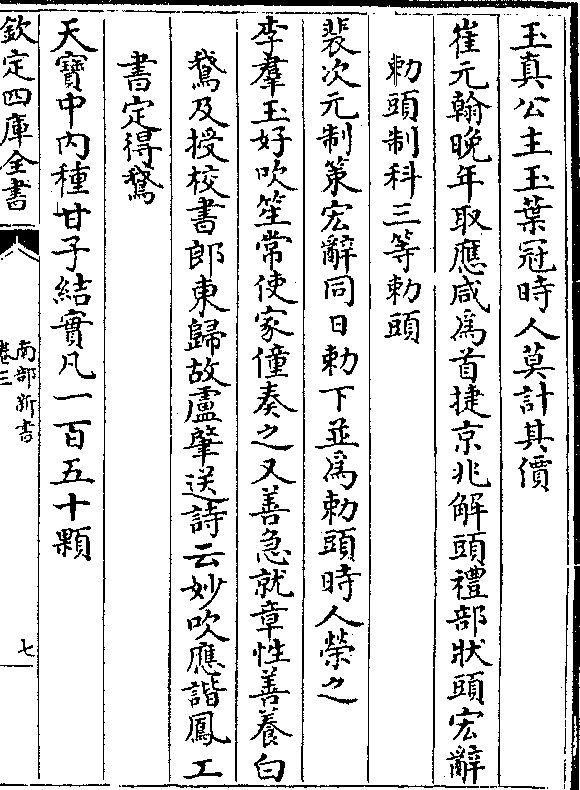 玉真公主玉葉冠時人莫計其價
崔元翰晚年取應咸為首捷京兆解頭禮部狀頭宏辭
勅頭制科三等勅頭
裴次元制策宏辭同日勅下並為勅頭時人榮之
李羣玉好吹笙常使家僮奏之又善急就章性善養白
鵞及授校書郎東歸故盧肇送詩云妙吹應諧鳳工
書定得鵞
天寶中內種甘子結實凡一百五十顆
欽定四庫全書
南部新書
卷三
七